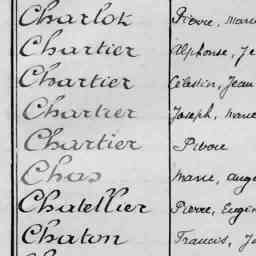 Charlot Pierre, Marie
Chartier Alphonse, Je
Chartier Célestin, Jean
Chartier Joseph, Marie
Chartier Pierre
Chas Marie, Auge
Chatellier Pierre, Eugèn
Chaton Francois, Jo